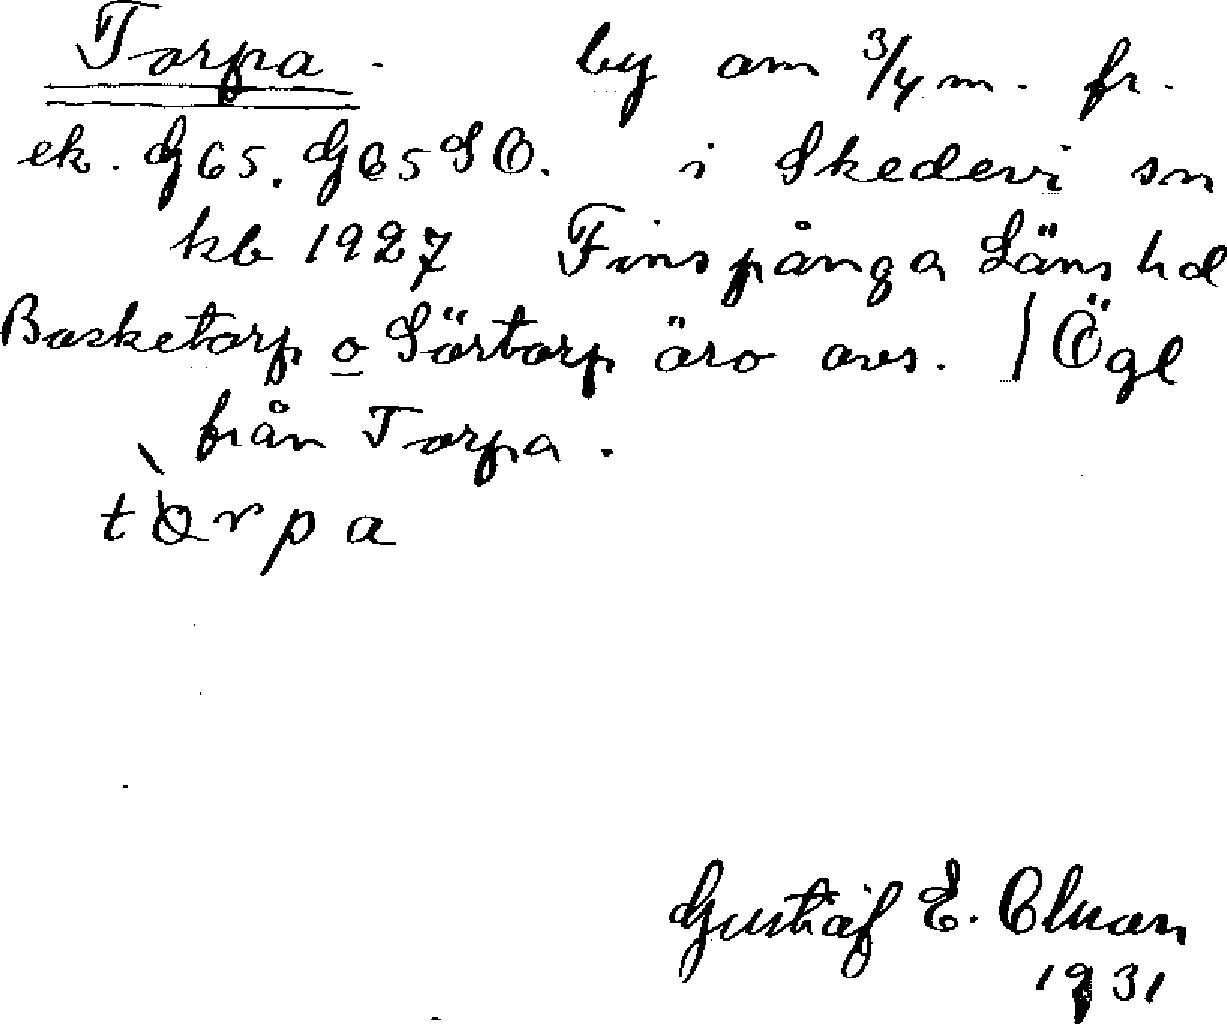 Torpa. by om 3/4 m. fr.
ek. G65. G65SO. i Skedevi sn
kb 1927 Finspånga Läns hd
Basketorp o Sörtorp äro avs. / Ögl
från Torpa.
tòrpa
Gustaf E.
1931